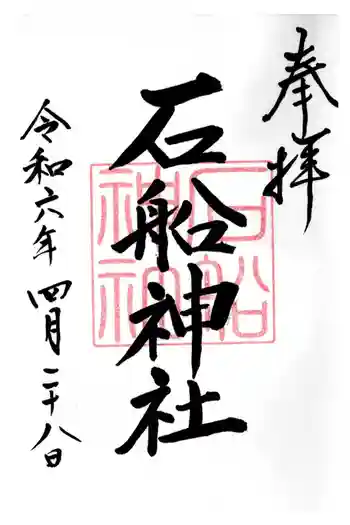 奉拝
石船神社
令和六年四月二十八日